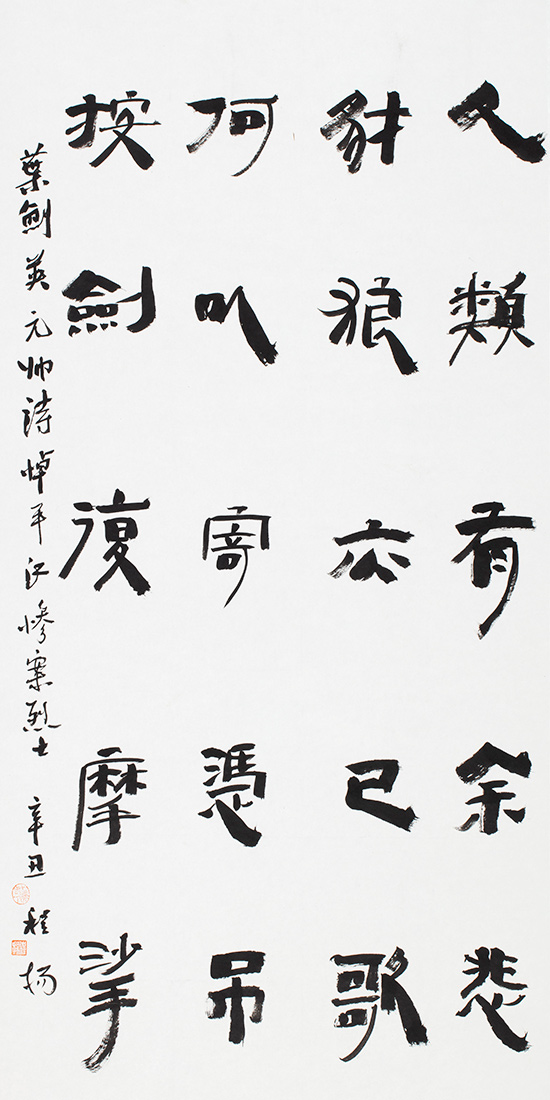 人類有余悲
豺狼亦已歌
何以寄憑吊
按劍復摩挲
葉劍英元帅詩悼平江慘案烈士 辛丑 程扬